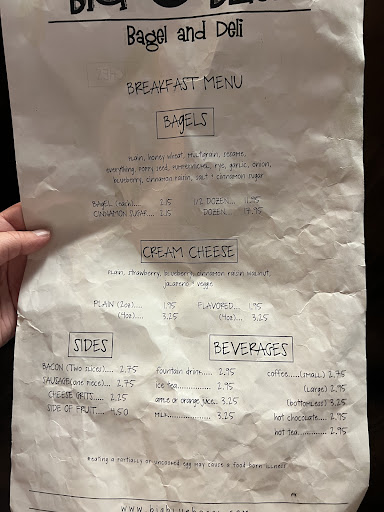 Bagel and Deli
BREAKFAST MENU
BAGELS
plain, honey wheat, multigrain, sesame,
everything, poppy seed, pumpernickel, rye, garlic, onion,
blueberry, cinnamon raisin, salt & cinnamon sugar
BAGEL (each)..... 2.15 1/2 DOZEN....
CINNAMON SUGAR.... 2.15 DOZEN..... 17.95
CREAM CHEESE
plain, strawberry, blueberry, cinnamon raisin walnut,
jalapeno & veggie
PLAIN (2oz)..... 1.95 FLAVORED.... 1.95
(4oz).... 3.25 (4oz)... 3.25
SIDES BEVERAGES
BACON (two slices)..... 2.75 fountain drink..... 2.95 coffee.....(small) 2.75
SAUSAGE (one piece)... 2.75 ice tea............... 2.95 (large) 2.95
CHEESE GRITS..... 2.25 apple or orange juice... 3.25 (bottomless) 3.25
SIDE OF FRUIT.... 4.50 MILK.................. 3.25 hot chocolate.... 2.95
hot tea............. 2.95
*eating a partially or uncooked egg may cause a food born illness